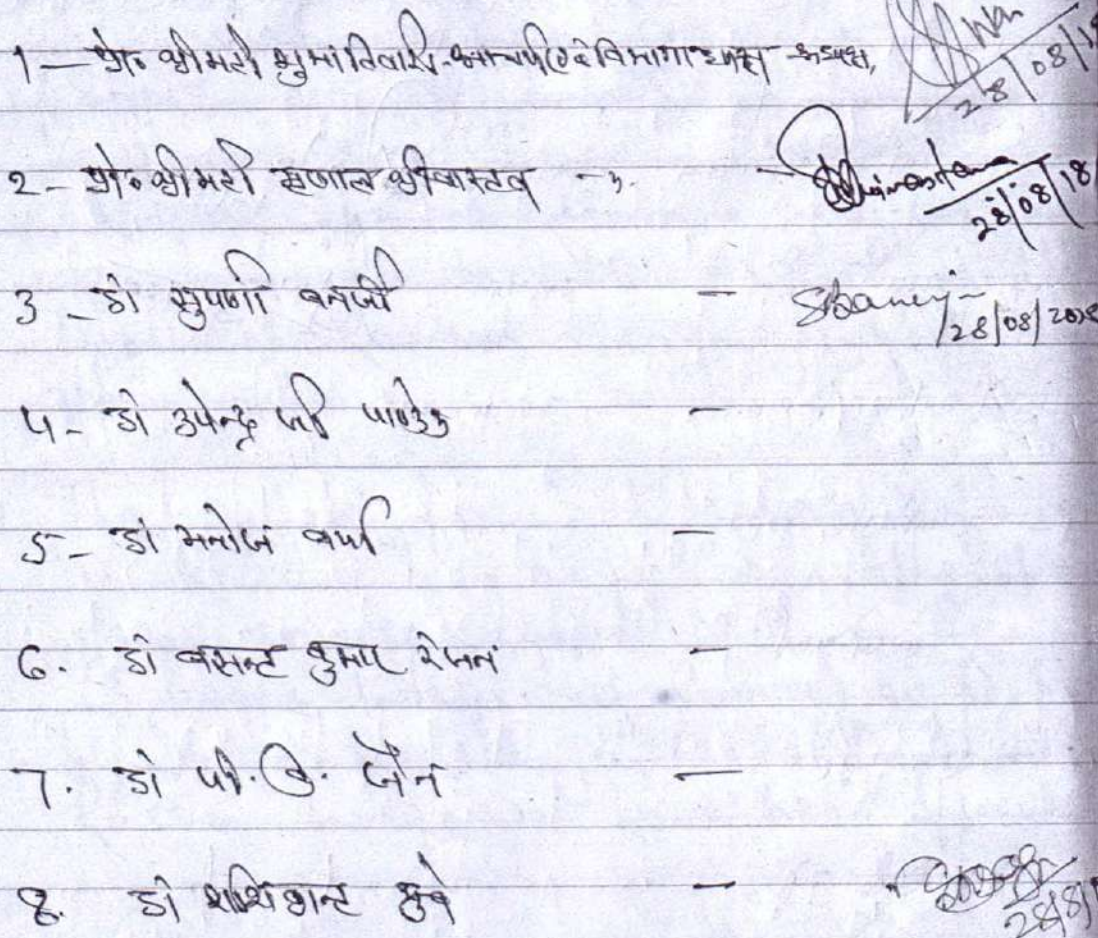 1 — प्रो० श्रीमती सुमा तिवारी - आचार्य एवं विभागाध्यक्ष - अध्यक्ष, 28/08/18
2 - प्रो० श्रीमती मृणाल श्रीवास्तव - 28/08/18
3 - डॉ सुपर्णा बनर्जी - SBanerji 28/08/2018
4 - डॉ उपेन्द्र जी पाण्डेय -
5 - डॉ मनोज वर्मा -
6. डॉ बसन्त कुमार रंजन -
7. डॉ पी. के. जैन -
8. डॉ शशिकान्त दुबे - 28/8/